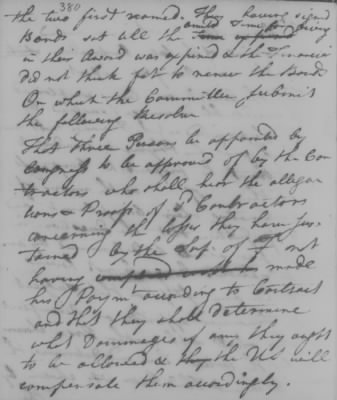 380
the two first named. They having signed
Bonds but all the Time for giving
in their Award was expired & the Financier
did not think fit to renew the Bonds
On which the Committee submit
the following Resolve
That three Persons be appointed by
Congress to be approved of by the Con
tractors who shall hear the allega
tions & Proofs of sd. Contractors
concerning the losses they have sus
tained by the Sup. of F. not
having made
his Paymt. according to Contract
and that they shall determine
what Dammages if any they ought
to be allowed & the U S will
compensate them accordingly.